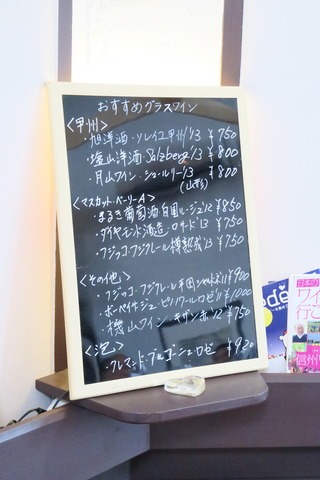 おすすめグラスワイン
<甲州>
・旭洋酒・ソレイユ甲州'13 ¥750
・塩山洋酒・Salzberg'13 ¥800
・月山ワイン・ソレイユ・ルバン'13 ¥800
(山形)
<マスカット・ベーリーA>
・まるき葡萄酒 自園ルージュ'12 ¥850
・ダイヤモンド酒造 ロザード'13 ¥750
・フジッコ・フジクレール樽熟成'13 ¥750
<その他>
・フジッコ・フジクレール ¥900
¥1000
・機山ワイン・キザン赤'12 ¥750
<泡>
・クレマンド・ブルゴーニュ・ロゼ ¥920
日本の
ワイ
行こ
信州